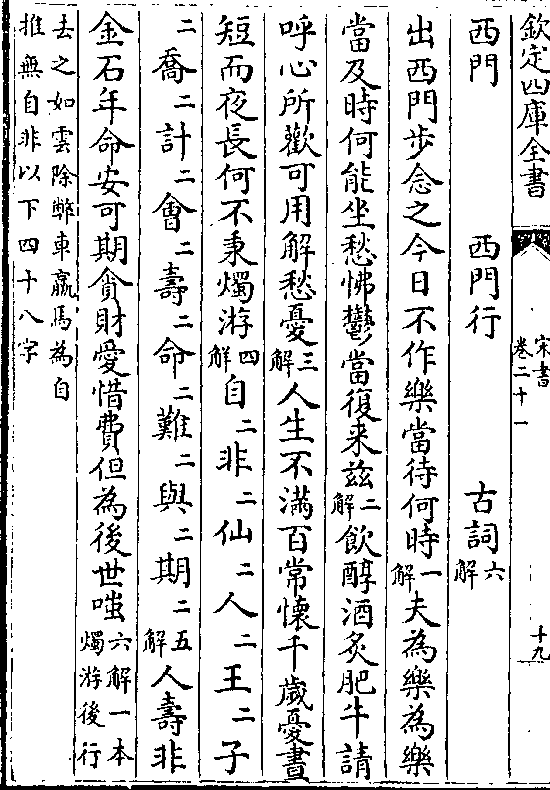 欽定四庫全書
宋書
卷二十一
十九
西門 西門行 古詞六解
出西門步念之今日不作樂當待何時一解夫為樂為樂
當及時何能坐愁怫鬱當復来兹二解飲醇酒炙肥牛請
呼心所歡可用解愁憂三解人生不滿百常懷千歲憂晝
短而夜長何不秉燭游四解自二非二仙二人二王二子
二喬二計二會二壽二命二難二與二期二五解人壽非
金石年命安可期貪財愛惜費但為後世嗤六解一本
燭游後行
去之如雲除弊車羸馬為自
推無自非以下四十八字